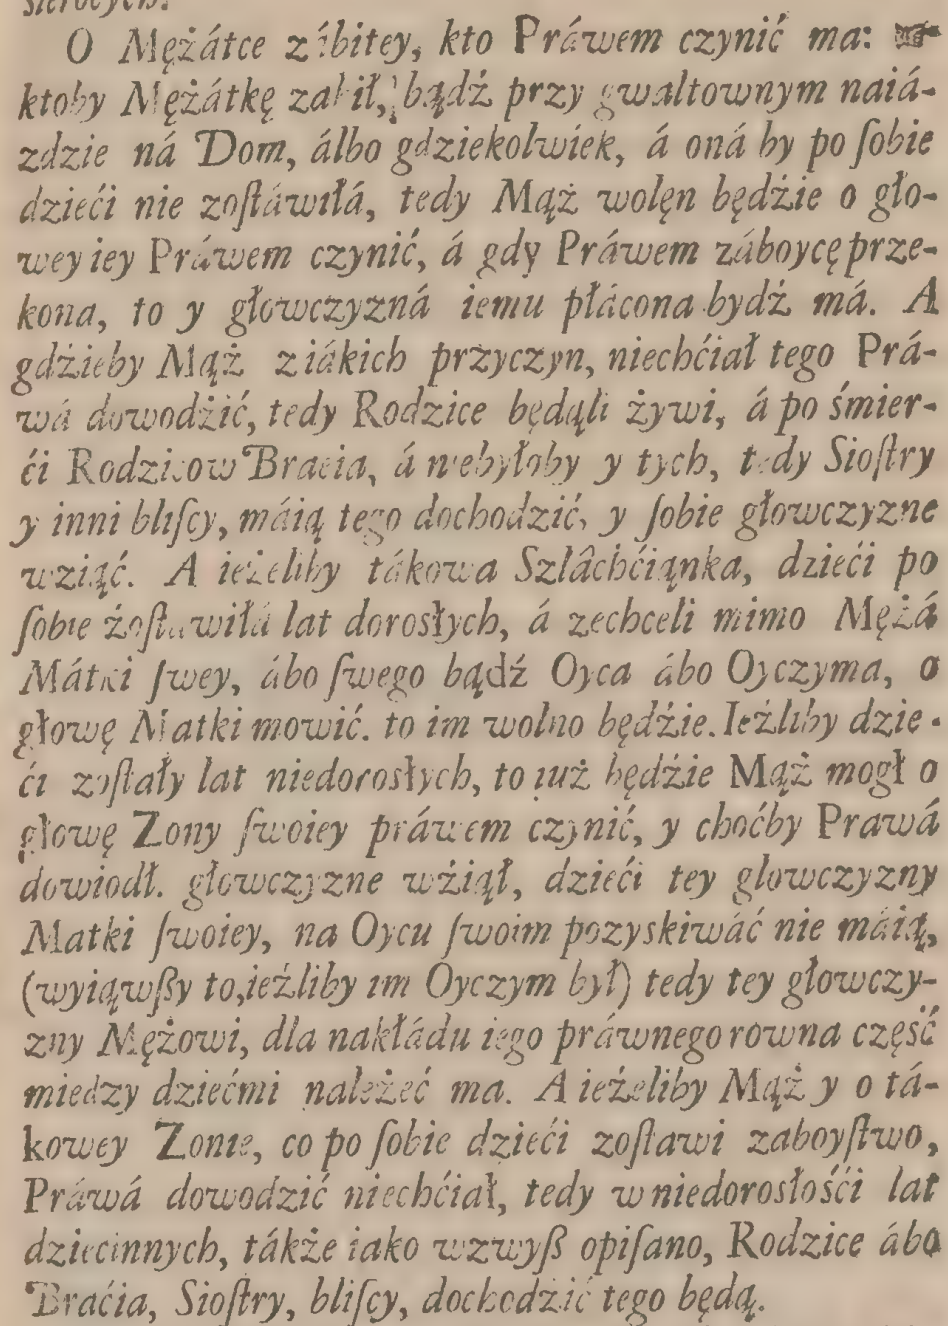 sierocych.
O Mężátce zábitey, kto Práwem czynić ma: ☞
ktoby Mężátkę zabił, bądź przy gwaltownym naiá-
zdzie ná Dom, álbo gdziekolwiek, á oná by po ſobie
dzieći nie zoſtáwiłá, tedy Mąż wolęn będźie o gło-
wey iey Práwem czynić, á gdy Práwem záboycę prze-
kona, to y głowczyzná iemu płácona bydź má. A
gdźieby Mąż z iákich przyczyn, niechćiał tego Prá-
wá dowodźić, tedy Rodzice będąli żywi, á po śmier-
ći Rodzicow Bracia, á niebyłoby y tych, tedy Sioſtry
y inni bliſcy, máią tego dochodzić, y ſobie głowczyzne
wziąć. A ieżeliby tákowa Szlâchćiąnka, dzieći po
ſobie żoſtawiłá lat dorosłych, á zechceli mimo Mężá
Mátki ſwey, ábo ſwego bądź Oyca ábo Oyczyma, o
głowę Matki mowić. to im wolno będźie. Ieżliby dzie-
ći zoſtały lat niedorosłych, to iuż będźie Mąż mogł o
głowę Zony ſwoiey práwem czynić, y choćby Prawá
dowiodł. głowczyzne wźiął, dzieći tey glowczyzny
Matki ſwoiey, na Oycu ſwoim pozyskiwáć nie máią,
(wyiąwſzy to,ieżliby im Oyczym był) tedy tey głowczy-
zny Mężowi, dla nakłádu iego práwnego rowna część
miedzy dziećmi należeć ma. A ieżeliby Mąż y o tá-
kowey Zonie, co po ſobie dzieći zoſtawi zaboyſtwo,
Práwá dowodzić niechćiał, tedy w niedorosłośći lat
dziecinnych, tákże iako wzwyſz opiſano, Rodzice ábo
Braćia, Sioſtry, bliſcy, dochodźić tego będą.